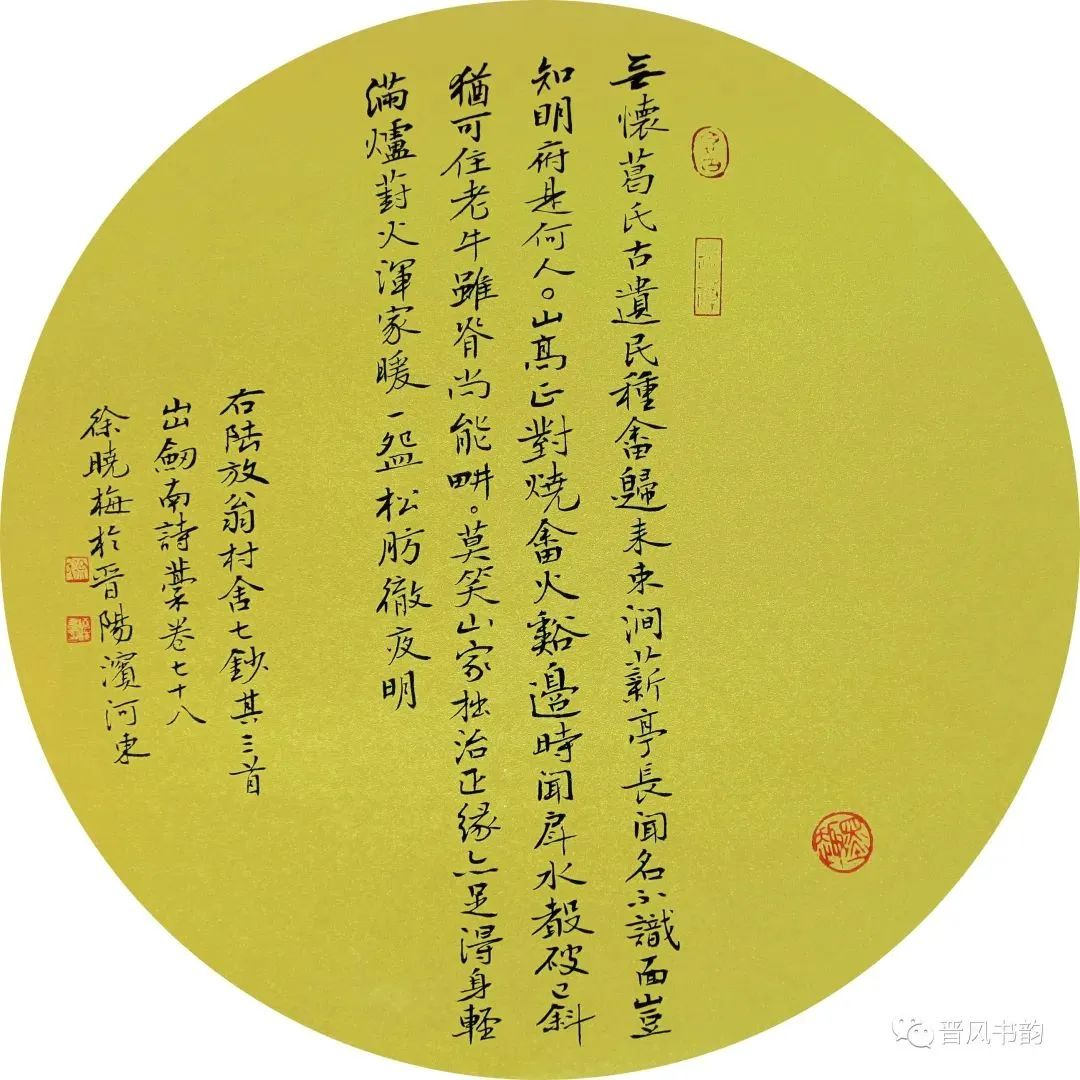 無懷葛氏古遺民種畬歸来東澗薪亭長聞名不識面豈
知明府是何人。山高正對燒畬火谿邉時聞戽水聲破已斜
猶可住老牛雖脊尚能畊。莫笑山家拙治正緣亦足得身輕
滿爐葑火渾家暖一盌松肪徹夜明
右陆放翁村舍七鈔其三首
出劒南詩藁卷七十八
徐曉梅於晋陽濱河東
晋风书韵